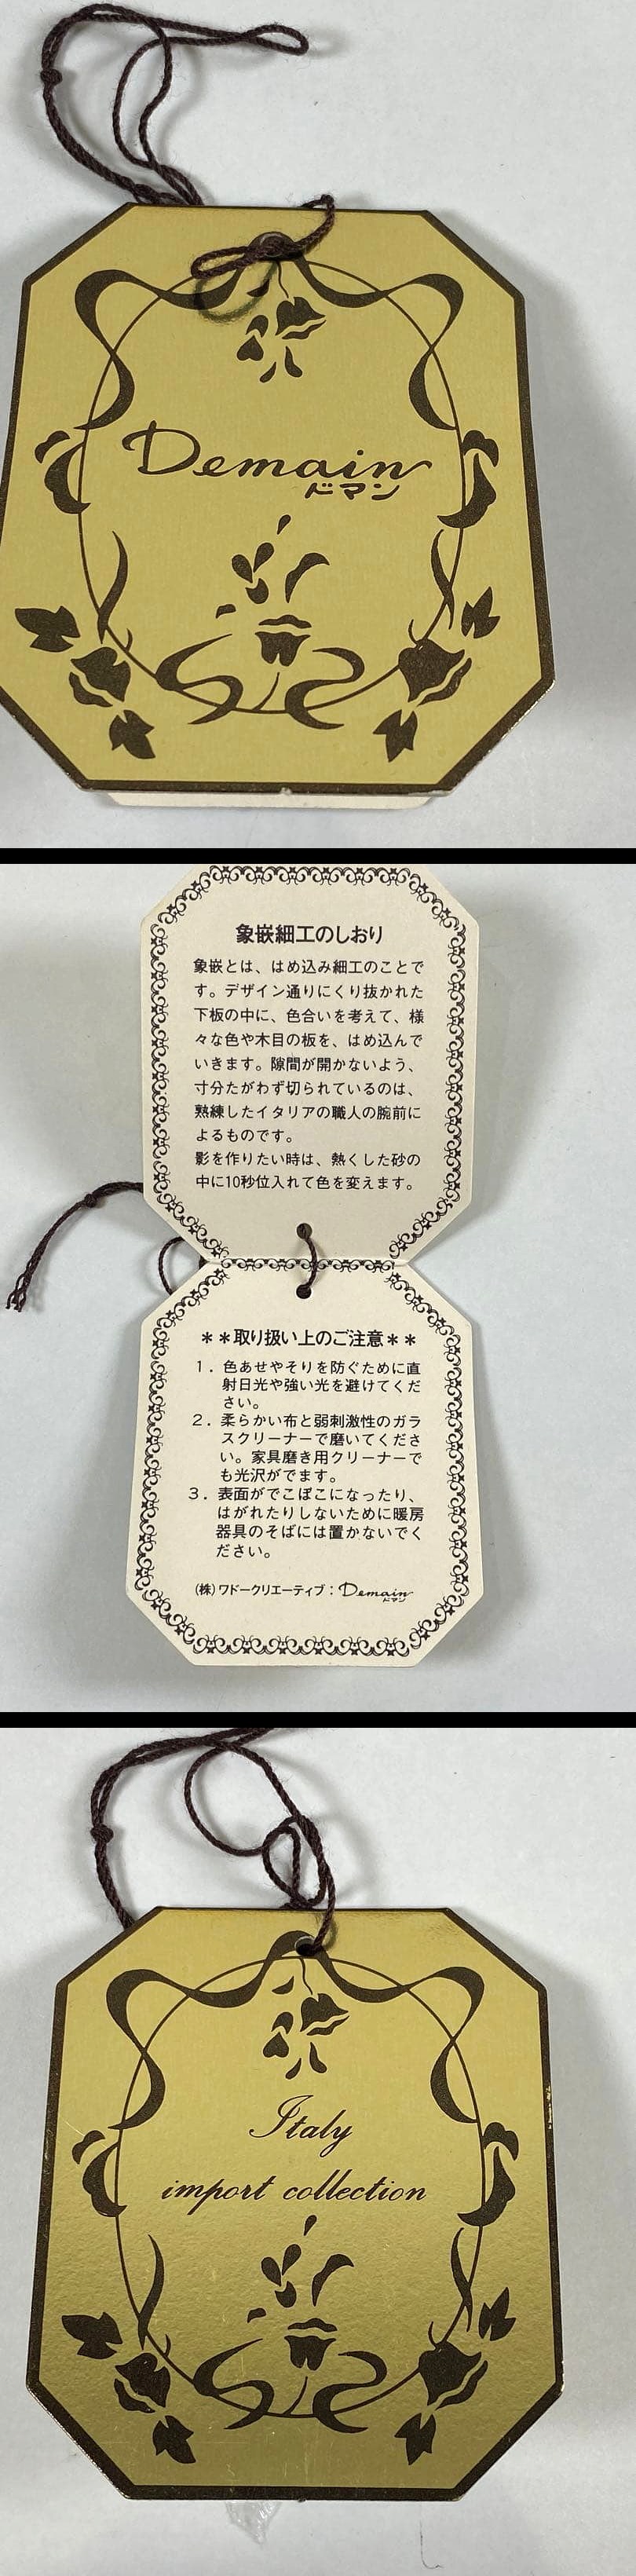 Demain
ドマン
象嵌細工のしおり
象嵌とは、はめ込み細工のことで
す。デザイン通りにくり抜かれた
下板の中に、色合いを考えて、様
々な色や木目の板を、はめ込んで
いきます。隙間が開かないよう、
寸分たがわず切られているのは、
熟練したイタリアの職人の腕前に
よるものです。
影を作りたい時は、熱くした砂の
中に10秒位入れて色を変えます。
＊＊取り扱い上のご注意＊＊
1．色あせやそりを防ぐために直
射日光や強い光を避けてくだ
さい。
2．柔らかい布と弱刺激性のガラ
スクリーナーで磨いてくださ
い。家具磨き用クリーナーで
も光沢がでます。
3．表面がでこぼこになったり、
はがれたりしないために暖房
器具のそばには置かないでく
ださい。
(株)ワドークリエーティブ：Demain
ドマン
Italy
import collection